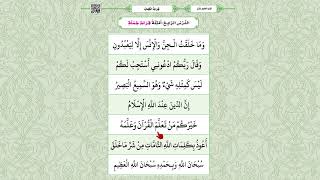 قراءة الكلمات
وَمَا خَلَقْتُ الْجِنَّ وَالْإِنْسَ إِلَّا لِيَعْبُدُونِ
وَقَالَ رَبُّكُمُ ادْعُونِي أَسْتَجِبْ لَكُمْ
لَيْسَ كَمِثْلِهِ شَيْءٌ وَهُوَ السَّمِيعُ الْبَصِيرُ
إِنَّ الدِّينَ عِنْدَ اللَّهِ الْإِسْلَامُ
خَيْرُكُمْ مَنْ تَعَلَّمَ الْقُرْآنَ وَعَلَّمَهُ
أَعُوذُ بِكَلِمَاتِ اللَّهِ التَّامَّاتِ مِنْ شَرِّ مَا خَلَقَ
سُبْحَانَ اللَّهِ وَبِحَمْدِهِ سُبْحَانَ اللَّهِ الْعَظِيمِ